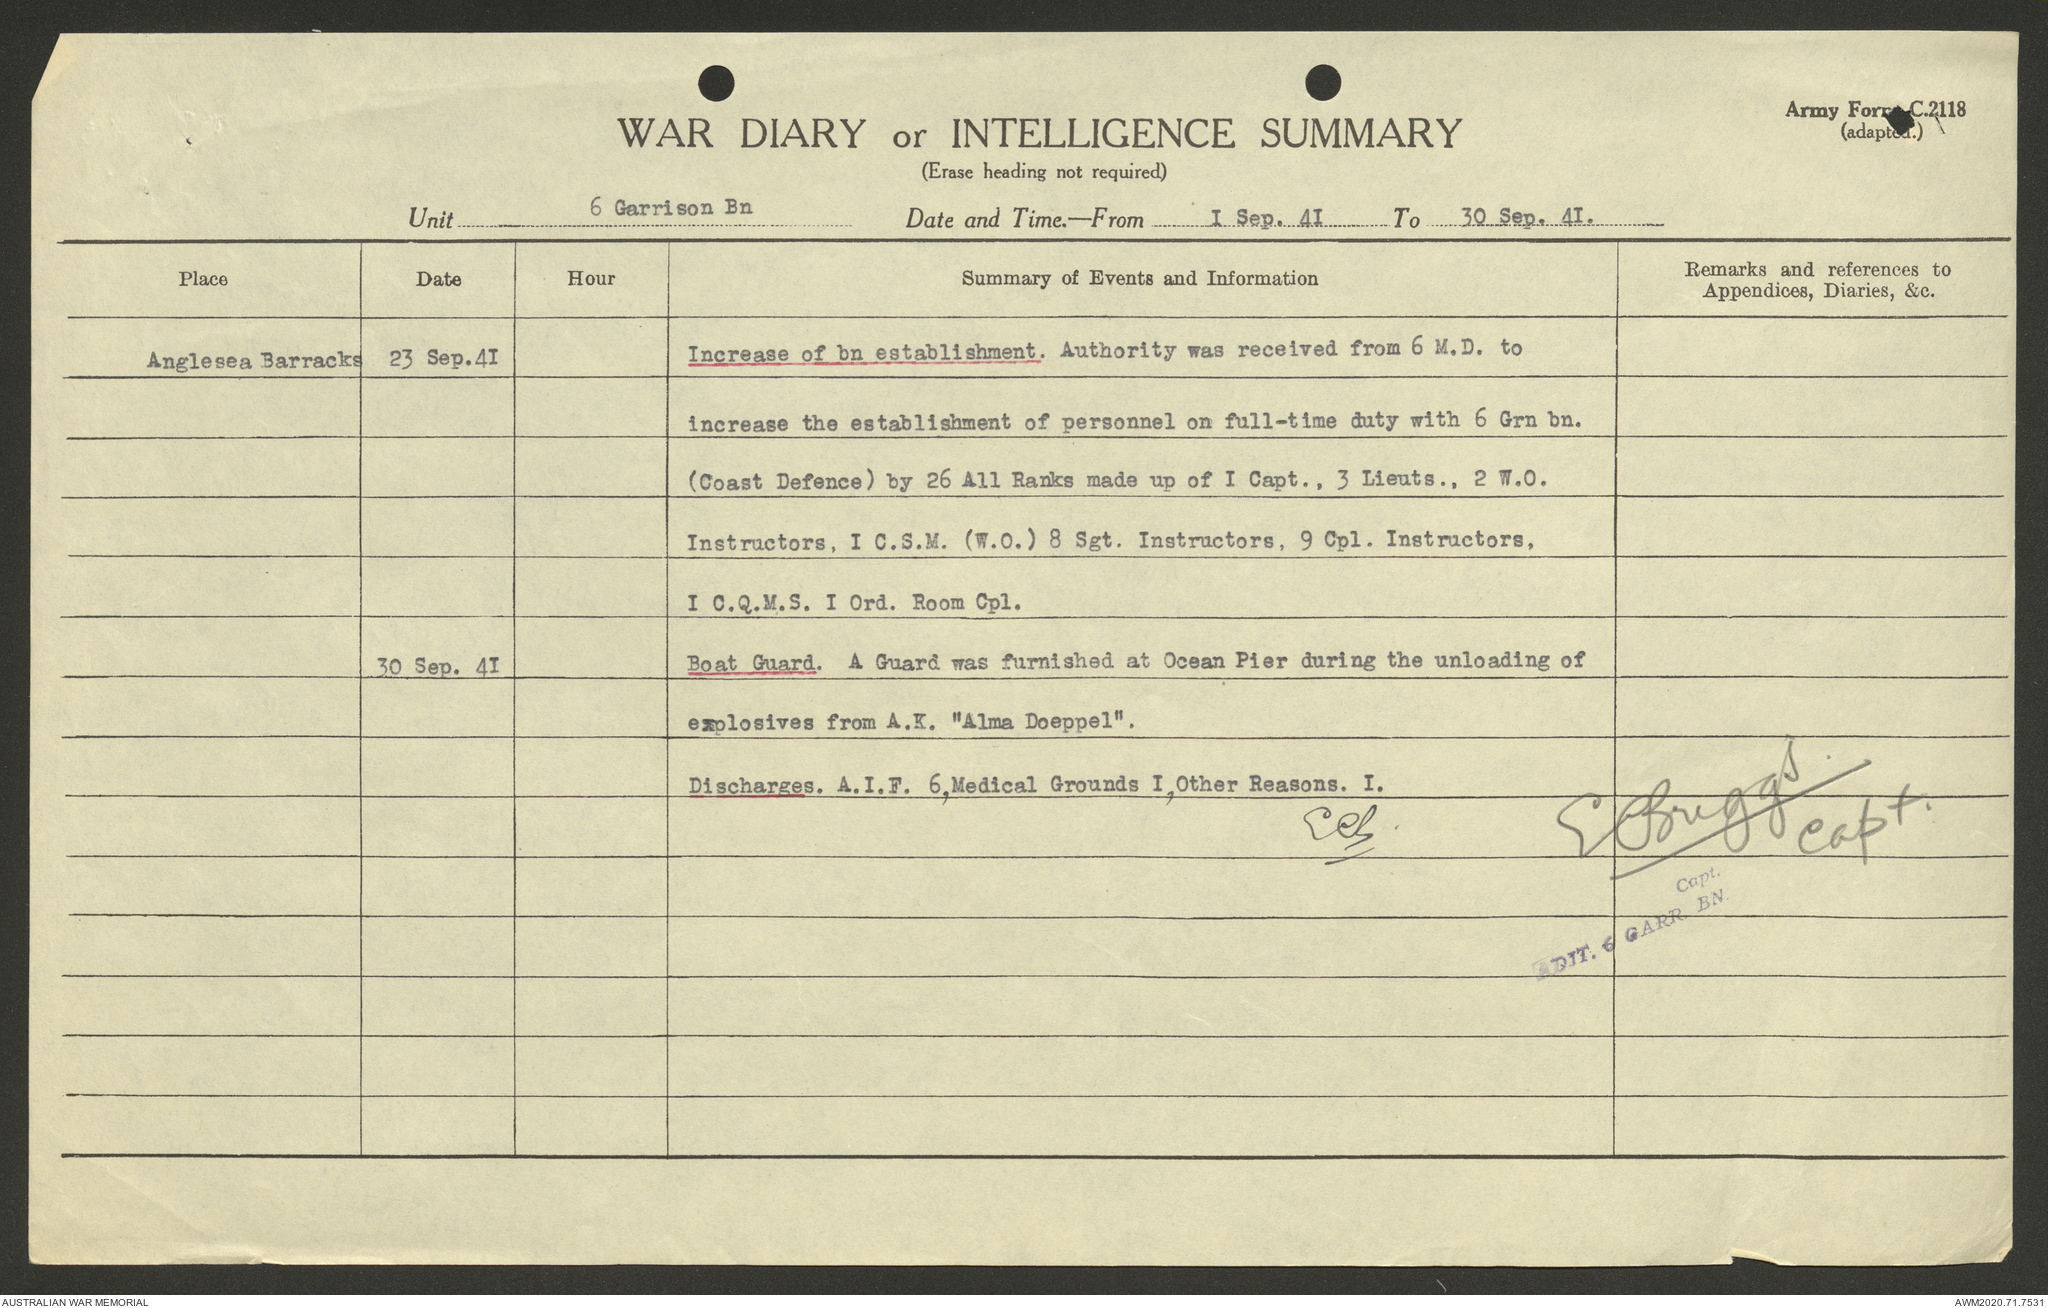 Army Form C.2118
(adapted.)
WAR DIARY or INTELLIGENCE SUMMARY
(Erase heading not required)
Unit 6 Garrison Bn Date and Time.—From I Sep. 4I To 30 Sep. 4I.
Place Date Hour Summary of Events and Information Remarks and references to
Appendices, Diaries, &c.
Anglesea Barracks 23 Sep.4I Increase of bn establishment. Authority was received from 6 M.D. to
increase the establishment of personnel on full-time duty with 6 Grn bn.
(Coast Defence) by 26 All Ranks made up of I Capt., 3 Lieuts., 2 W.O.
Instructors, I C.S.M. (W.O.) 8 Sgt. Instructors, 9 Cpl. Instructors,
I C.Q.M.S. I Ord. Room Cpl.
30 Sep. 4I Boat Guard. A Guard was furnished at Ocean Pier during the unloading of
explosives from A.K. "Alma Doeppel".
Discharges. A.I.F. 6,Medical Grounds I,Other Reasons. I.
E Briggs Capt.
Capt.
ADJT. 6 GARR. BN.
AUSTRALIAN WAR MEMORIAL AWM2020.71.7531